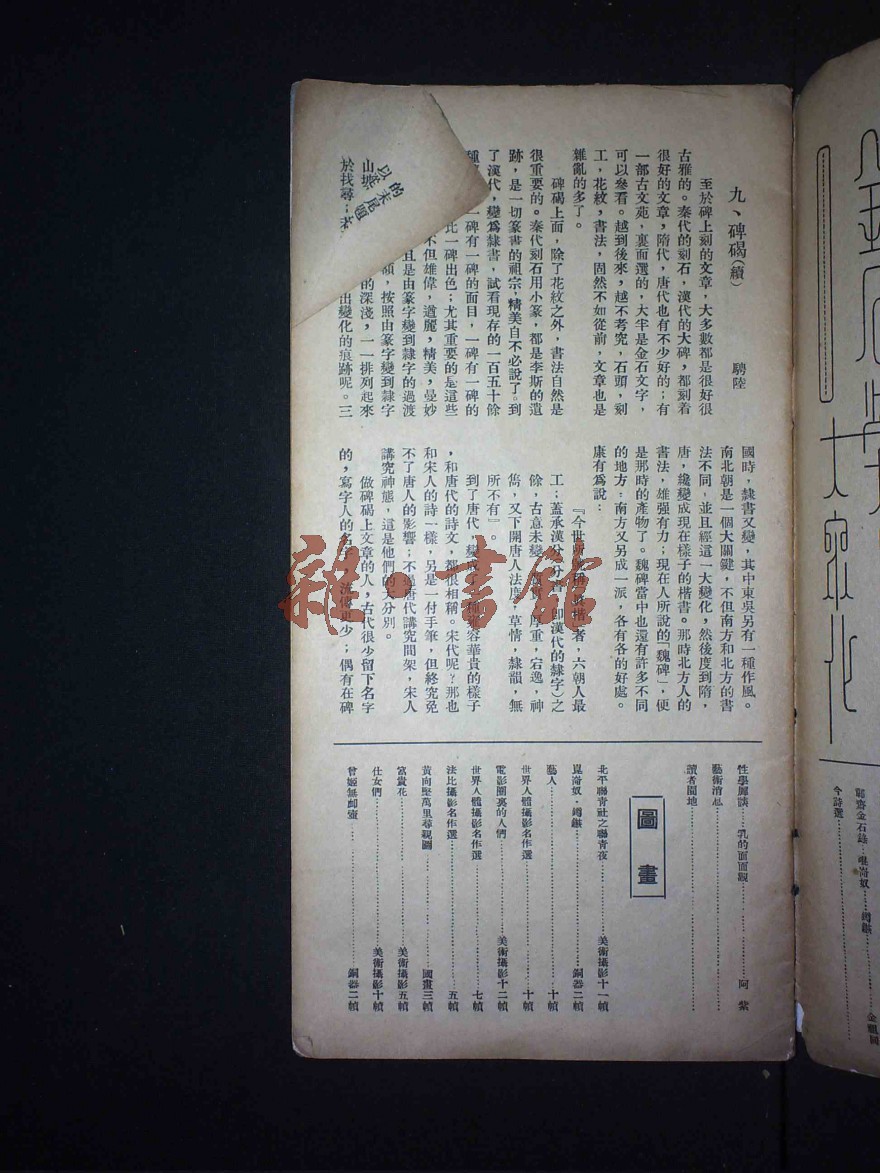 九、碑碣(續)
騁陸
至於碑上刻的文章，大多數都是很好很
古雅的。秦代的刻石，漢代的大碑，都刻着
很好的文章，隋代，唐代也有不少好的；有
一部古文苑，裏面選的，大半是金石文字，
可以參看。越到後來，越不考究，石頭，刻
工，花紋，書法，固然不如從前，文章也是
雜亂的多了。
碑碣上面，除了花紋之外，書法自然是
很重要的。秦代刻石用小篆，都是李斯的遺
跡，是一切篆書的祖宗，精美自不必說了。到
了漢代，變爲隸書，試看現存的一百五十餘
種
一碑有一碑的面目，一碑有一碑的
比一碑出色；尤其重要的是這些
不但雄偉，遒麗，精美，曼妙
且是由篆字變到隸字的過渡
，按照由篆字變到隸字
的深淺，一一排列起來
於找尋；
出變化的痕跡呢。三
山
以
的末尾題
國時，隸書又變，其中東吳另有一種作風。
南北朝是一個大關鍵，不但南方和北方的書
法不同，並且經這一大變化，然後度到隋，
唐，纔變成現在樣子的楷書。那時北方人的
書法，雄强有力；現在人所說的「魏碑」，便
是那時的產物了。魏碑當中也還有許多不同
的地方：南方又另成一派，各有各的好處。
康有爲說：
『今世所稱眞楷者，六朝人最
工；蓋承漢分（即漢代的隸字）之
餘，古意未變，厚重，宕逸，神
儁，又下開唐人法度，草情，隸韻，無
所不有』。
到了唐代，變成了一種雍容華貴的樣子
，和唐代的詩文，都很相稱。宋代呢？那也
和宋人的詩一樣，另是一付手筆，但終究免
不了唐人的影響；不過唐代講究間架，宋人
講究神態，這是他們的大分別。
做碑碣上文章的人，古代很少留下名字
的，寫字人的名字，流傳更少；偶有在碑
性學麗談……乳的面面觀……阿紫
藝術消息
讀者園地
圖畫
北平聯青社之聯青夜……美術攝影十一幀
崑崙奴・鐏鐓……銅器二幀
藝人……十幀
世界人體攝影名作選……十幀
電影圈裏的人們……美術攝影十二幀
世界人體攝影名作選……七幀
法比攝影名作選……五幀
黃向堅萬里尋親圖……國畫三幀
富貴花……美術攝影五幀
仕女們……美術攝影十幀
曾姬無卹壺……銅器二幀
大衆化
齋金石錄……崑崙奴……鐏鐓
今詩選
雜・書館